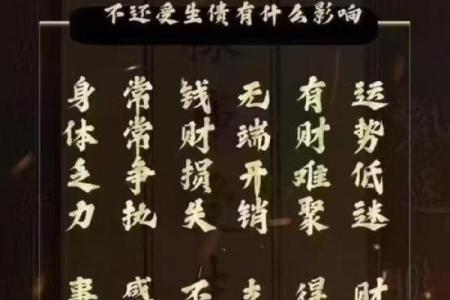 不还受生债有什么影响
运势低迷
有财难聚
无端开销
钱财损失
常常争执
身体乏力
财
得
不
感
事